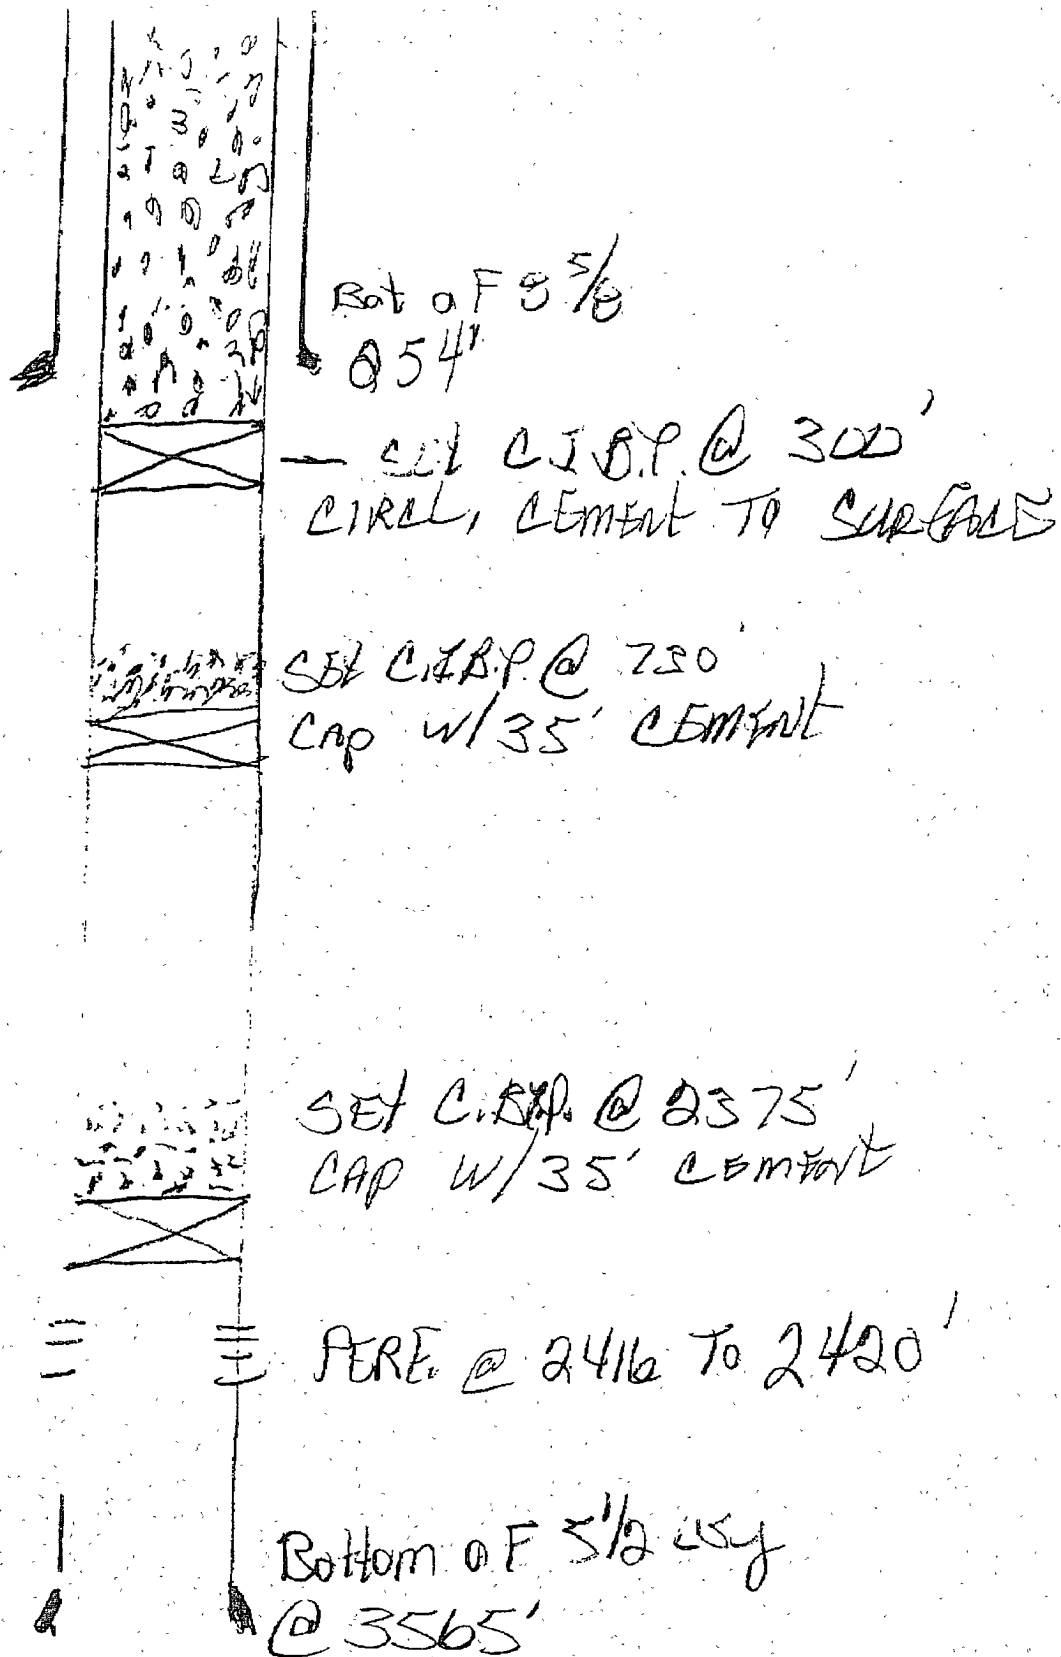 Bot oF 8 5/8
@ 54'
— SET C.I.B.P. @ 300'
CIRCL, CEMENT TO SURFACE
SET C.I.B.P. @ 730'
CAP W/ 35' CEMENT
SET @ 2375'
CAP W/ 35' CEMENT
PERF. @ 2416 To 2420'
Bottom oF 5 1/2 csg
@ 3565'